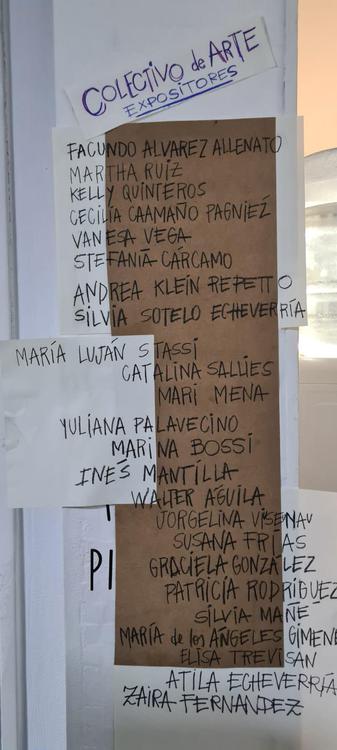 COLECTIVO de ARTE
EXPOSITORES
FACUNDO ALVAREZ ALLENATO
MARTHA RUIZ
KELLY QUINTEROS
CECILIA CAAMAÑO PAGNIEZ
VANESA VEGA
STEFANIA CÁRCAMO
ANDREA KLEIN REPETTO
SILVIA SOTELO ECHEVERRÍA
MARÍA LUJÁN STASSI
CATALINA SALLIES
MARI MENA
YULIANA PALAVECINO
MARINA BOSSI
INÉS MANTILLA
WALTER AGUILA
JORGELINA VISENAU
SUSANA FRÍAS
GRACIELA GONZÁLEZ
PATRICIA RODRÍGUEZ
SILVIA MAÑÉ
PI
MARÍA de los ÁNGELES GIMENE
ELISA TREVISAN
ATILA ECHEVERRÍA
ZAIRA FERNANDEZ